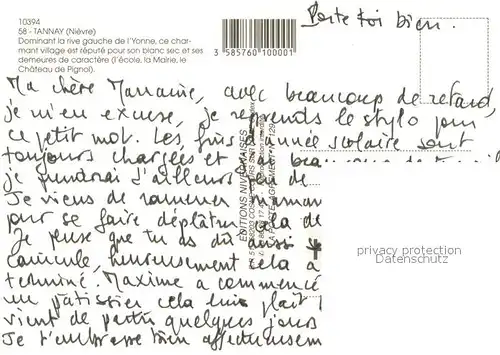 10394
58 - TANNAY (Nièvre)
Dominant la rive gauche de l'Yonne, ce char-
mant village est réputé pour son blanc sec et ses
demeures de caractère (l'école, la Mairie, le
Château de Pignol).
3 585760 100001
Porte toi bien.
Ma chère Marraine, avec beaucoup de retard,
je m'en excuse, je reprends le stylo pour
ce petit mot. Les fins d'année scolaire sont
toujours chargées et j'ai beaucoup de travail
je prendrai d'ailleurs de
Je viens de ramener maman
pour se faire déplâtrer cela de
Je pense que tu as dû aussi
canicule, heureusement cela a
terminé. Maxime a commencé
un pâtissier cela lui plaît
vient de partir quelques jours
Je t'embrasse bien affectueusement
EDITIONS NIVERNAISES
privacy protection
Datenschutz